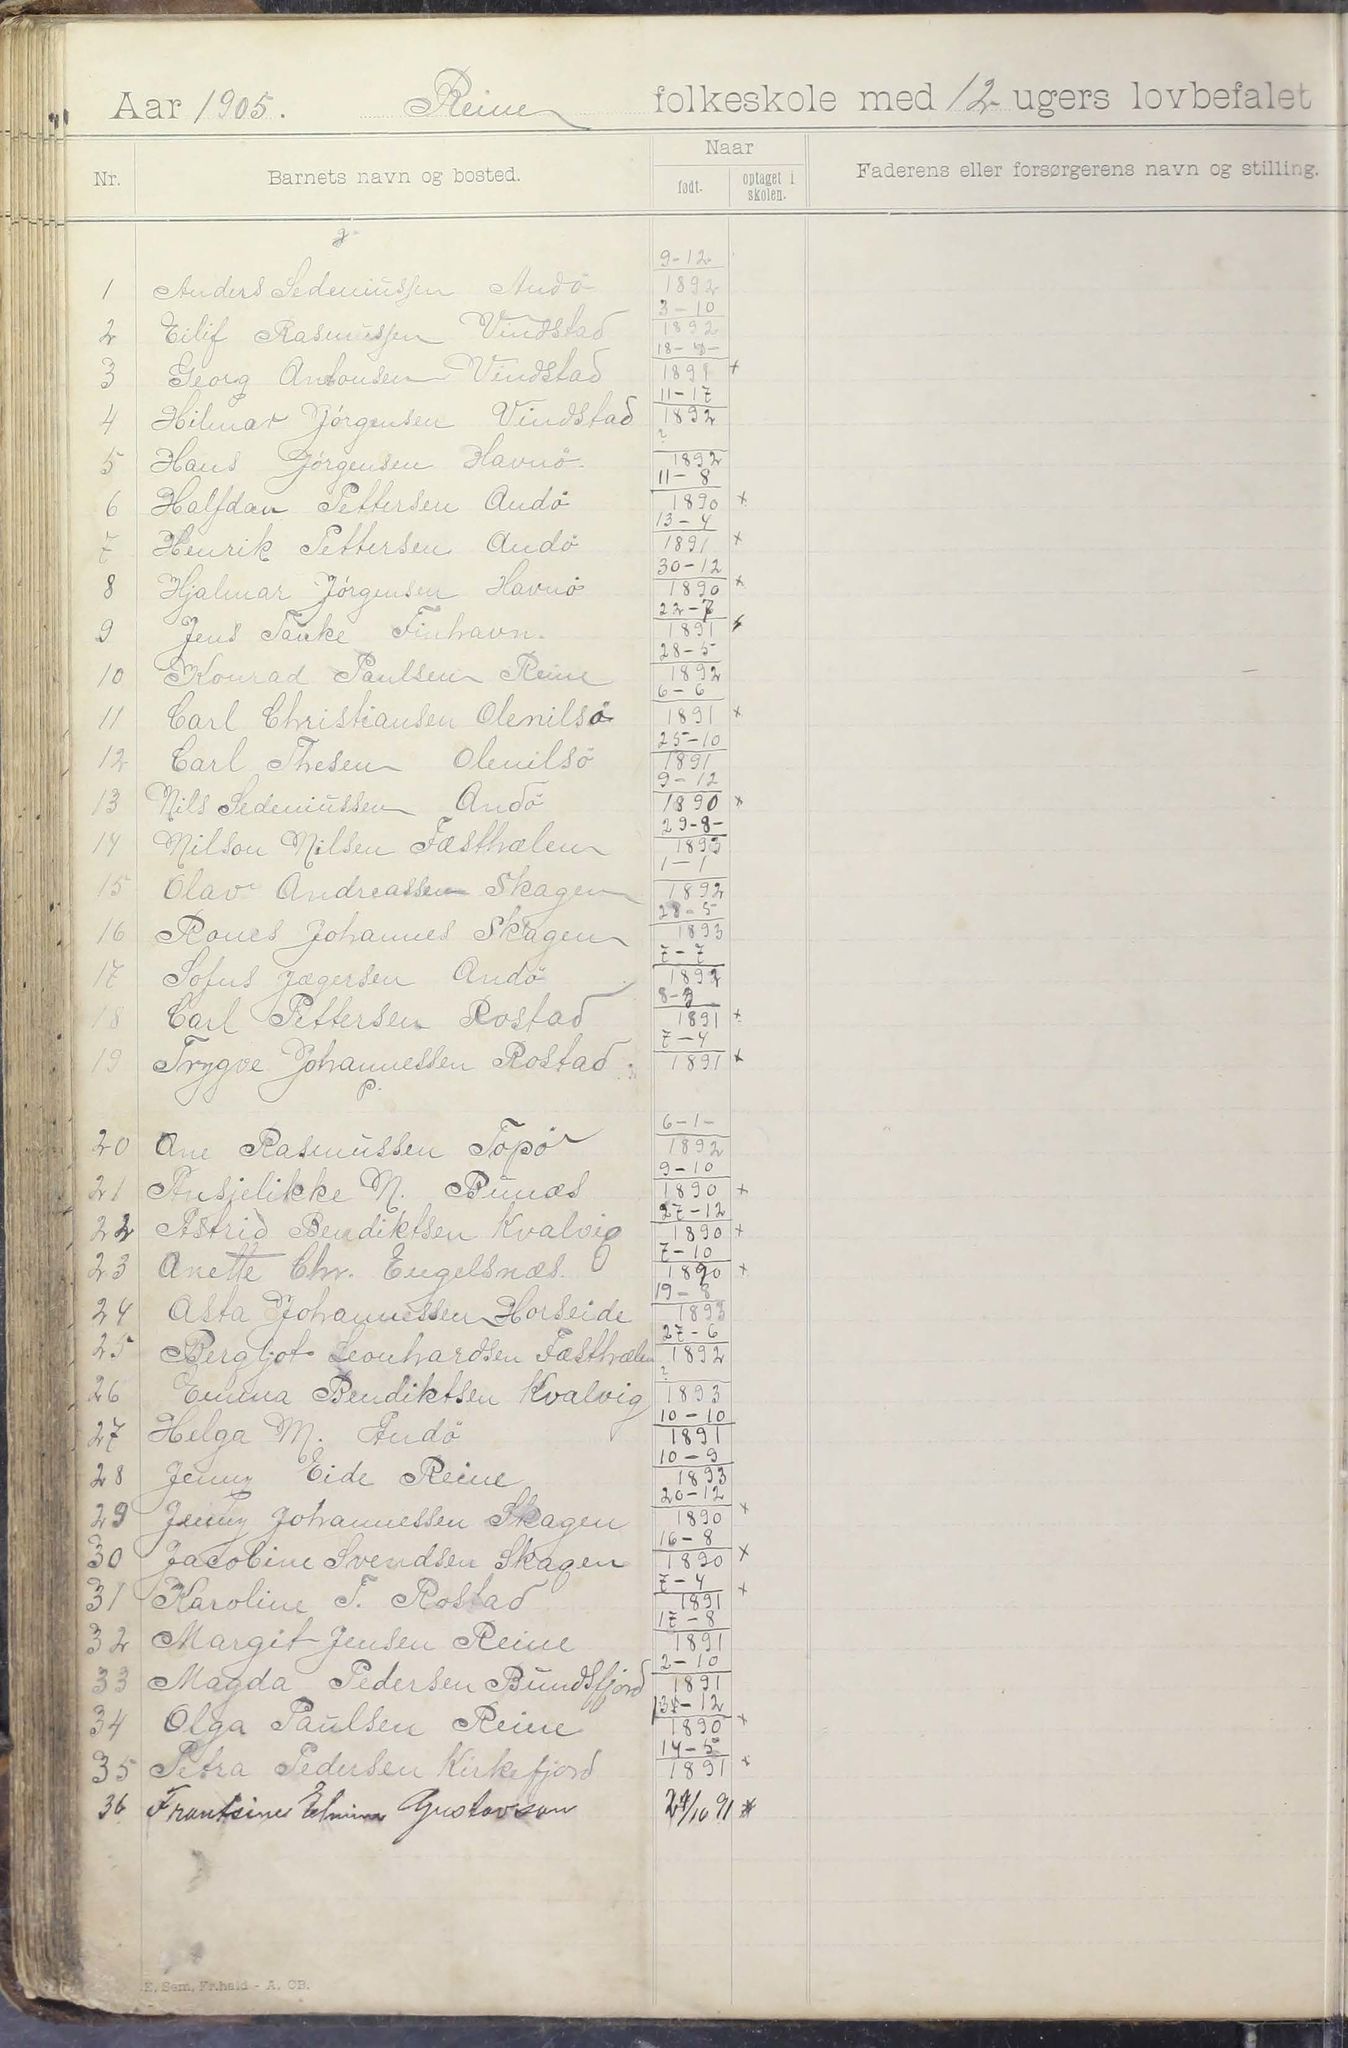 Aar 1905. Reine folkeskole med 12 ugers lovbefalet
Nr. Barnets navn og bosted. Naar født. optaget i skolen. Faderens eller forsørgerens navn og stilling.
g.
1 Anders Sedeniussen Andö 9-12 1892
2 Eilif Rasmussen Vindstad 3-10 1892
3 Georg Antonsen Vindstad 18- 1891 +
4 Hilmar Jörgensen Vindstad 11-17 1892
5 Hans Jörgensen Havnö. ? 1892
6 Halfdan Pettersen Andö 11-8 1890 +
7 Henrik Pettersen Andö 13-4 1891 +
8 Hjalmar Jörgensen Havnö 30-12 1890 +
9 Jens Tanke Finhavn. 22-7 1891 +
10 Konrad Paulsen Reine 28-5 1892
11 Carl Christiansen Olenilsö 6-6 1891 +
12 Carl Thesen Olenilsö 25-10 1891
13 Nils Sedeniussen Andö 9-12 1890 +
14 Nilson Nilsen Fæsthælen 29-8- 1893
15 Olav Andreassen Skagen 1-1 1892
16 Rones Johannes Skagen 28-5 1893
17 Sofus Jægersen Andö 7-7 1892
18 Carl Pettersen Rostad 8-3 1891 +
19 Trygve Johannessen Rostad 7-4 1891 +
P.
20 Ane Rasmussen Topö 6-1- 1892
21 Ansjelikke N. Bunæs 9-10 1890 +
22 Astrid Bendiktsen Kvalvig 27-12 1890 +
23 Anette Chr. Engelsnæs. 7-10 1890 +
24 Asta Johannessen Horseide 19-8 1893
25 Bergljot Leonhardsen Fæsthælen 27-6 1892
26 Emma Bendiktsen Kvalvig ? 1893
27 Helga M. Andö 10-10 1891
28 Jenny Eide Reine 10-9 1893
29 Jenny Johannessen Skagen 20-12 1890 +
30 Jacobine Svendsen Skagen 16-8 1890 +
31 Karoline T. Rostad 7-4 1891 +
32 Margit Jensen Reine 17-8 1891
33 Magda Pedersen Bundsfjord 2-10 1891
34 Olga Paulsen Reine 31-12 1890 +
35 Petra Pedersen Kirkefjord 14-5 1891 +
36 Frantsine Elmina Gustavson 24/10 91 +
E. Sem, Fr.hald - A. CB.